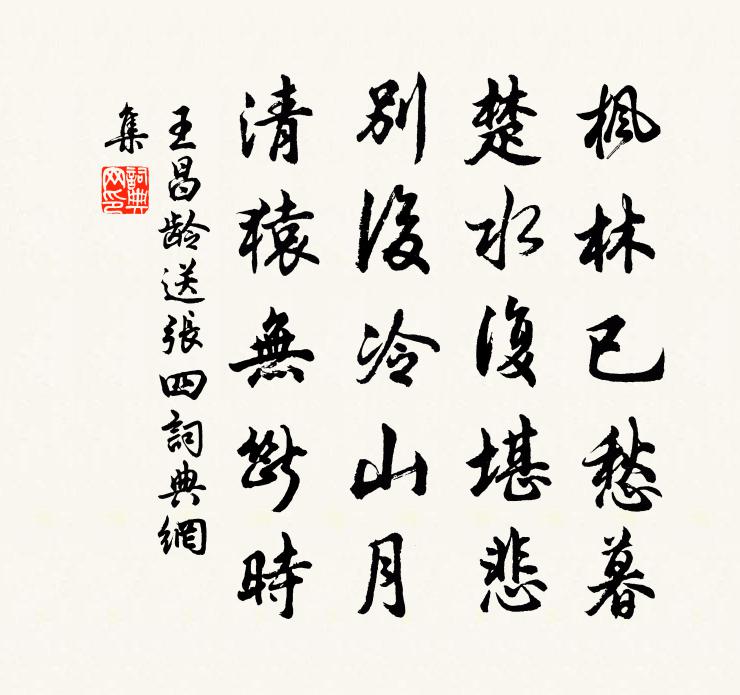 枫林已愁暮
楚水復堪悲
别後冷山月
清猿無断時
王昌龄送張四詞典網
集
詞典
网印